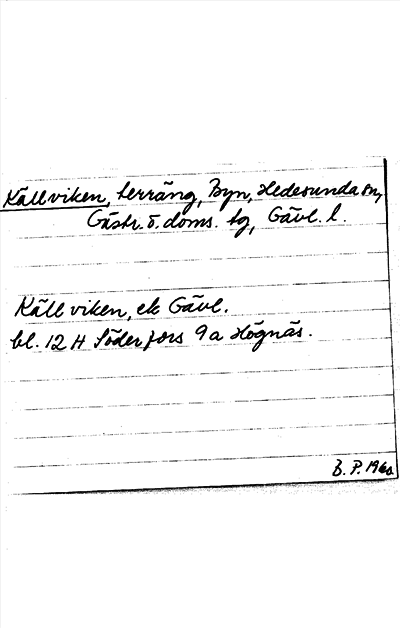 Källviken, terräng, Byn, Hedesunda sn,
Gästr. ö. doms. tg, Gävl. l.
Källviken, ek Gävl.
bl. 12 H Söderfors 9 a Högnäs.
B. P. 1960